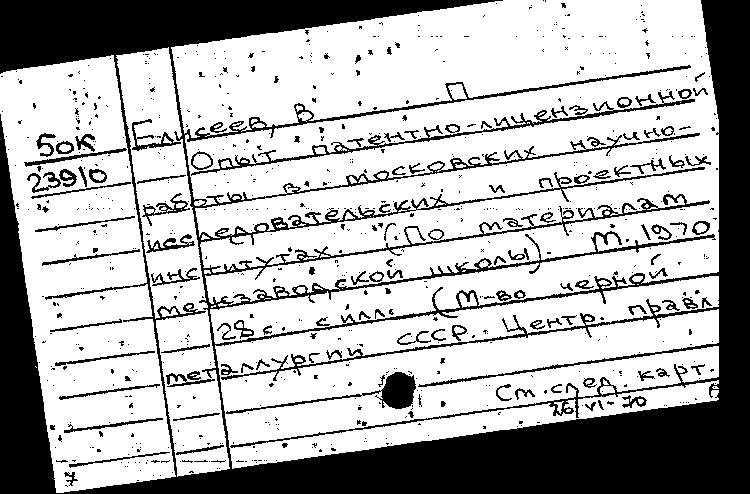 50К
23910
Елисеев, В П
Опыт патентно-лицензионной
работы в московских научно-
исследовательских и проектных
институтах. (По материалам
межзаводской школы). М., 1970
28 с. с илл. (М-во черной
металлургии СССР. Центр. правл
См. след. карт.
26/VI-70
7